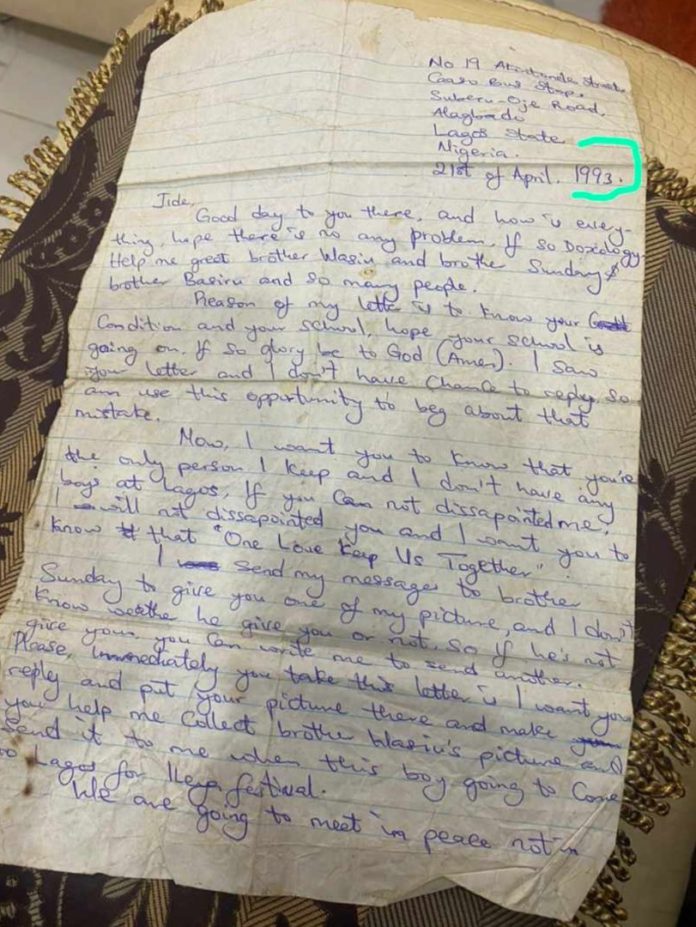 No 19 Akintonde Street
Coaso Bus Stop.
Suberu-Oje Road.
Alagbado
Lagos State
Nigeria.
21st of April. 1993.
Jide,
Good day to you there, and how is every-
thing, hope there is no any problem. If so Doxology.
Help me great brother Wasiu and brothe Sunday &
brother Basiru and so many people.
Reason of my letter is to know your
Condition and your school, hope your school is
going on. If so glory be to God (Amen). I saw
your letter and I don't have chance to reply, so
am use this opportunity to beg about that
mistake.
Now, I want you to know that you're
the only person I keep and I don't have any
boys at Lagos, If you can not dissapointed me,
I will not dissapointed you and I want you to
know that "One Love Keep Us Together".
I send my message to brother
Sunday to give you one of my picture, and I don't
know weathe he give you or not, so if he's not
give your, you can write me to send another.
Please, Immediately you take this letter is I want you
reply and put your picture there and make
you help me Collect brothe Wasiu's picture and
send it to me when this boy going to Come
to Lagos for festival.
We are going to meet in peace not in